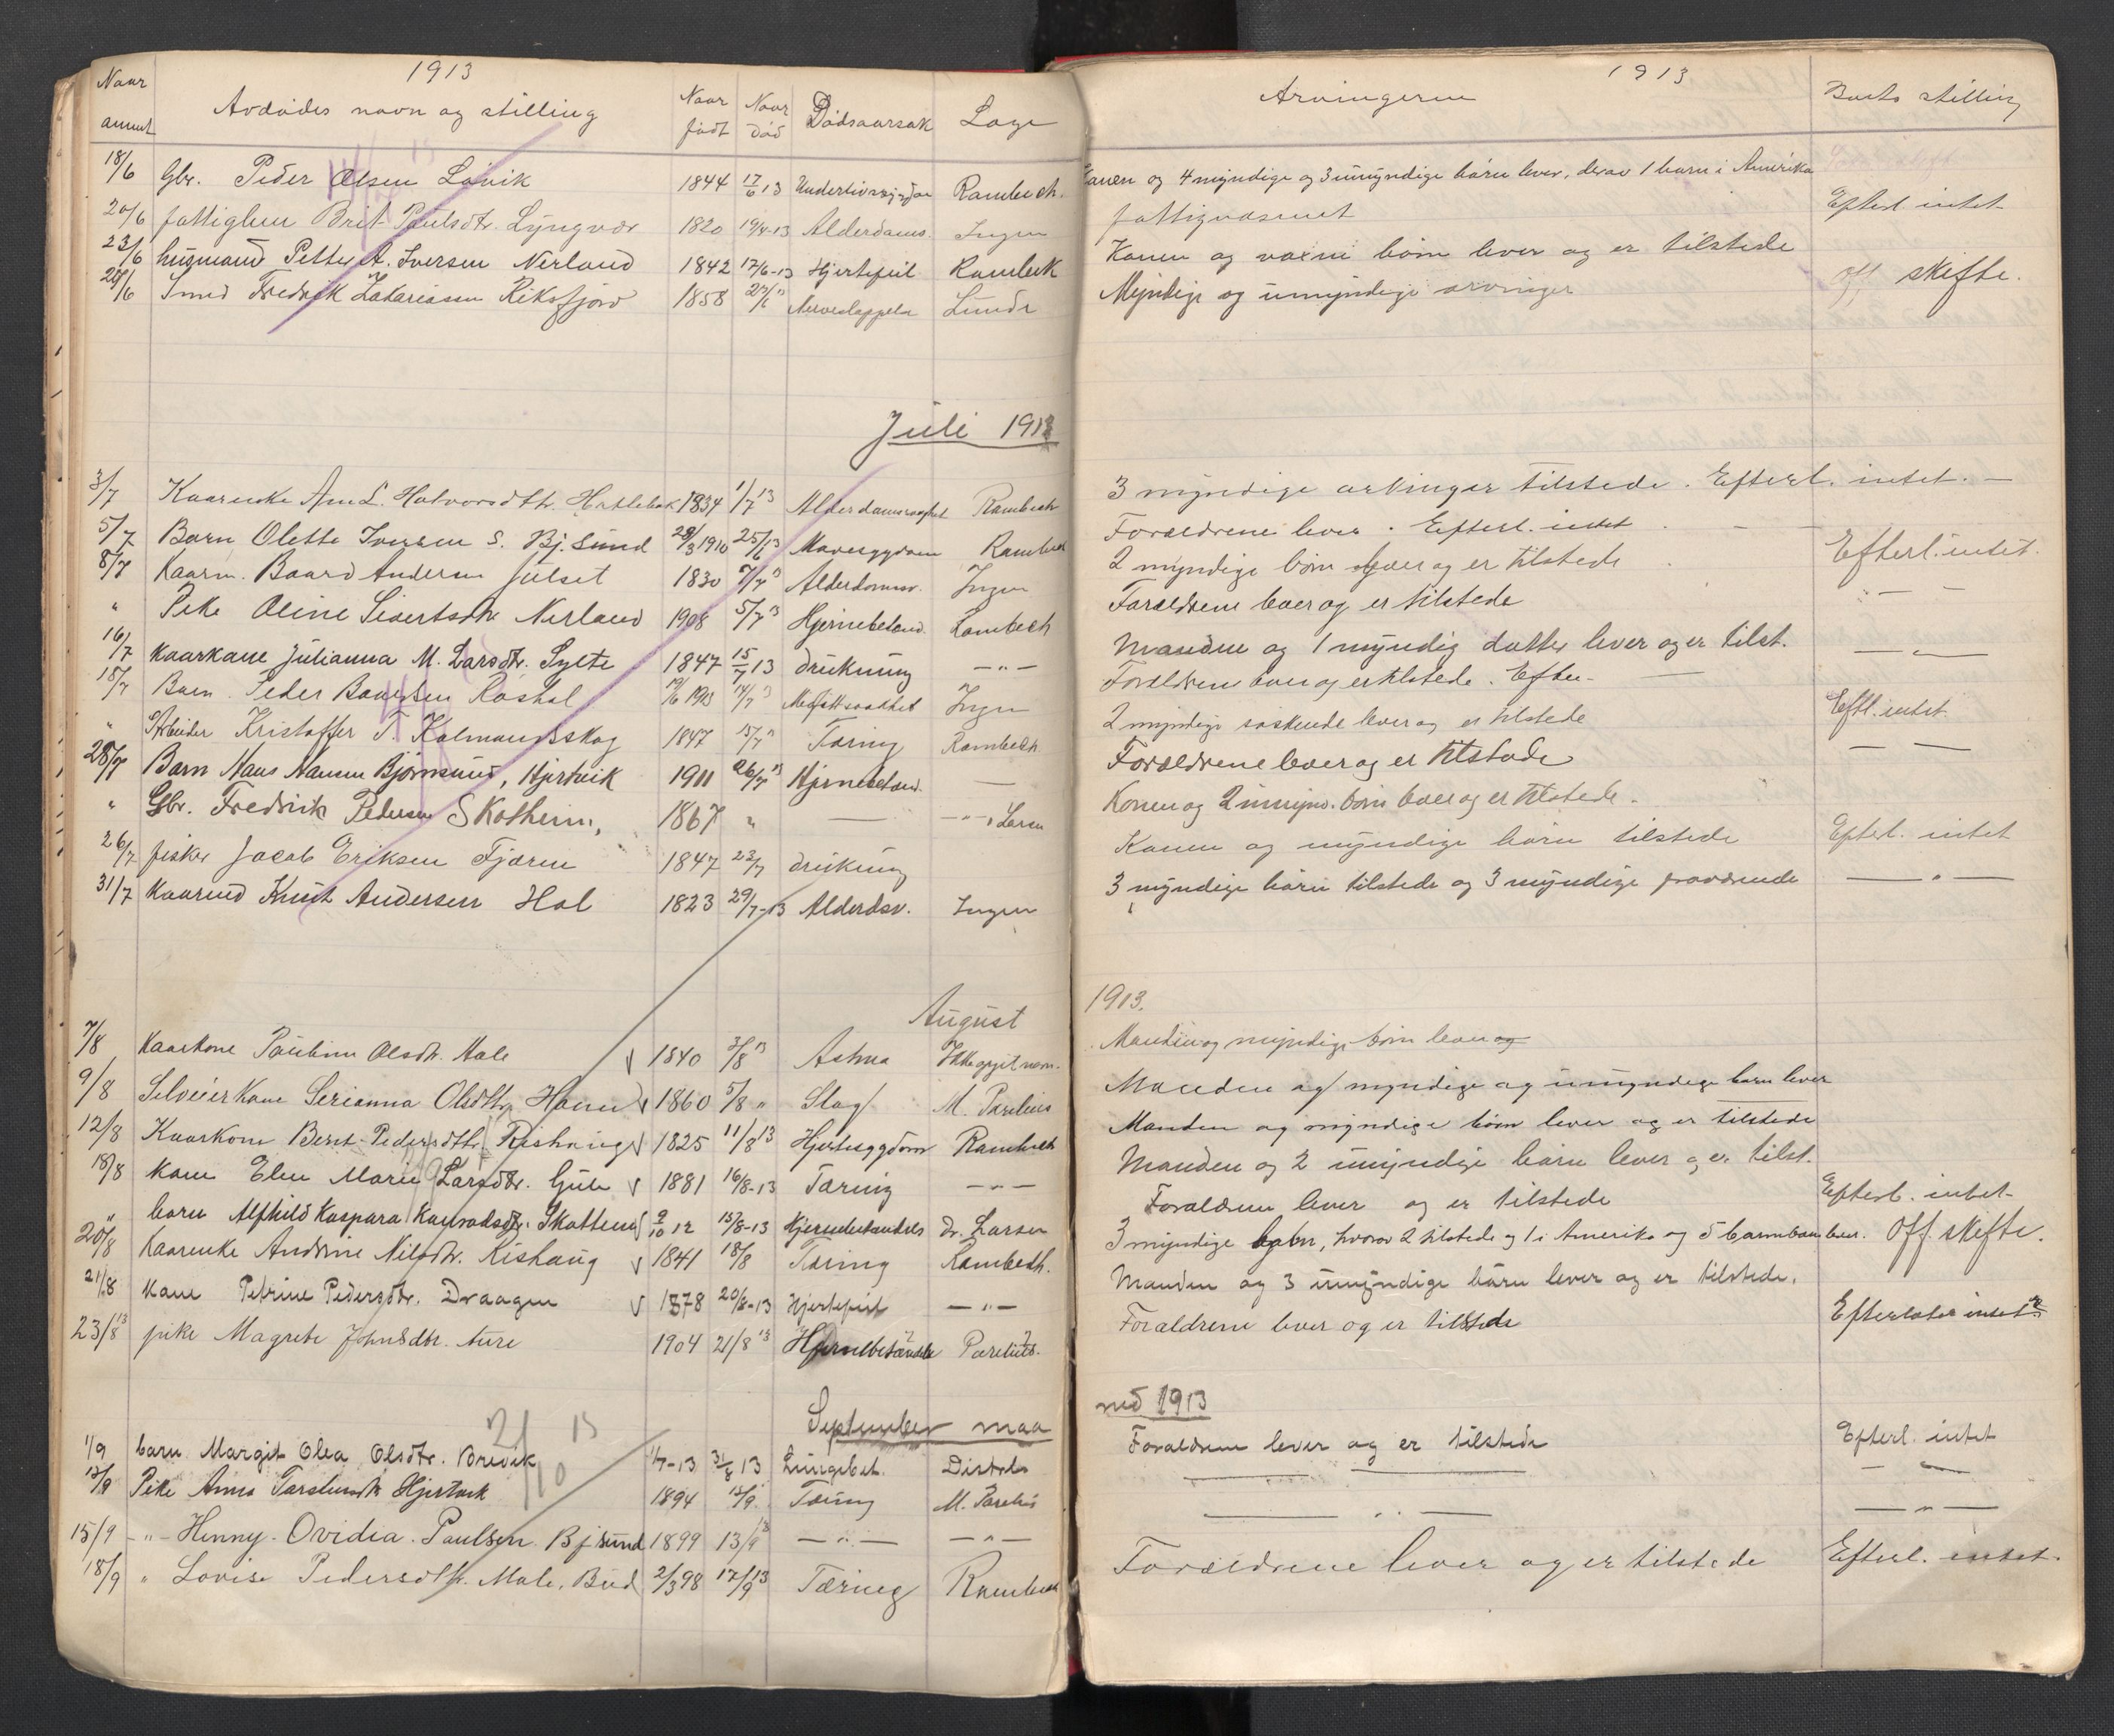 1913
Naar anmt Avdødes navn og stilling Naar født Naar død Dødsaarsak Læge
18/6 Gbr. Peder Olsen Løvik 1844 17/6 13 Rambech.
20/6 fattiglem Brit Paulsdtr. Lyngvær 1820 19/4-13 Alderdoms. Ingen
23/6 husmand Petter A. Iversen Nerland 1842 17/6-13 Hjertefeil Rambek
28/6 Smed Fredrik Zakariassen Riksfjord 1858 Lunde
Juli 1913
3/7 Kaarenke Halvorsdtr. 1834 1/7 13 Rambech
5/7 Barn Olette Iversen S. Bj.sund 28/3 1910 25/6 13 Mavesygdom Rambech
8/7 Kaarm. Baard Andersen Julset 1830 7/7 " Alderdomsv. Ingen
" Pike Oline Sivertsdtr Nerland 1908 5/7 13 Hjernebetænd. Rambech
16/7 Kaarkone Julianna M. Larsdtr. Sylte 1847 15/7 13 drukning — " —
18/7 Barn Peder 14/7 " Ingen
" Arbeider Kristoffer T. Kolmannsskog 1847 15/7 " Tæring Rambech
28/7 Barn Hans Hansen Bjørnsund, Hjertvik 1911 26/7 13 Hjernebetænd. —
" Gbr. Fredrik Pedersen Skotheim, 1867 " — — " — Larsen
26/7 fisker Jacob Eriksen Fjæren 1847 23/7 drukning
31/7 Kaarmd Knut Andersen Hol 1823 29/7-13 Alderdsv. Ingen
August
7/8 Kaarkone Pauline Olsdtr. Male v 1840 3/8 13 Astma Ikke opgit navn.
9/8 Selveierkone Serianna Olsdtr. v 1860 5/8 " Slag M. Parelius
12/8 Kaarkone Berit Pedersdtr. Rishaug v 1825 11/8 13 Hjertesygdom Rambech
18/8 Kone Elen Marie Larsdtr. Gule v 1881 16/8-13 Tæring — " —
" barn Alfhild Kaspara Konradsdtr. 9/10 12 15/8-13 Hjernebetændels Dr. Larsen
20/8 Kaarenke Andrine Nilsdtr. Rishaug v 1841 18/8 Tæring Rambech.
21/8 Kone Petrine Pedersdtr. Draagen v 1878 20/8-13 Hjertefeil — " —
23/8 13 pike Magrete Johnsdtr. Aure 1904 21/8 13 Hjernebetændelse Parelius.
21/10 13
September maa
1/9 barn Margit Olea Olsdtr. Brevik 1/7-13 31/8 13 Lungebet. Distrl.
13/9 Pike Anna Hjertvik 1894 12/9 Tæring M. Parelius
15/9 — " — Henny Ovidia Paulsen Bjsund 1899 13/9 — " — — " —
18/9 " Lovise Pedersdtr. Male, Bud 2/3 98 17/9 13 Tæring Rambech
1913
Arvingerne Boets stilling
Konen og 4 myndige og 3 umyndige børn lever, derav 1 barn i Amerika
fattigvæsenet Efterl intet
Konen og voxne børn lever og er tilstede
Myndige og umyndige arvinger off skifte.
3 myndige arvinger tilstede. Efterl. intet. —
Forældrene lever. Efterl. intet —
2 myndige børn lever og er tilstede Efterl. intet.
Forældrene lever og er tilstede — " —
Manden og 1 myndig datter lever og er tilst. — " —
Forældrene lever og er tilstede. —
2 myndige søskende lever og er tilstede Eftl. intet
Forældrene lever og er tilstede — —
Konen og 2 umynd. børn lever og er tilstede.
Konen og myndige børn tilstede Efterl. intet
3 myndige børn tilstede og 3 myndige fraværende — " —
1913.
Manden og myndige børn lever og
Manden og myndige og umyndige børn lever
Manden og myndige børn lever og er tilstede
Manden og 2 umyndige børn lever og er tilst.
Forældrene lever og er tilstede Efterl. intet
3 myndige børn, hvorav 2 tilstede og 1 i Amerika og 5 barnebørn lever. Off. skifte.
Manden og 3 umyndige børn lever og er tilstede.
Forældrene lever og er tilstede Efterlater intet
ned 1913
Forældrene lever og er tilstede Efterl. intet
— — — —
— " — — " —
Forældrene lever og er tilstede Efterl. intet.